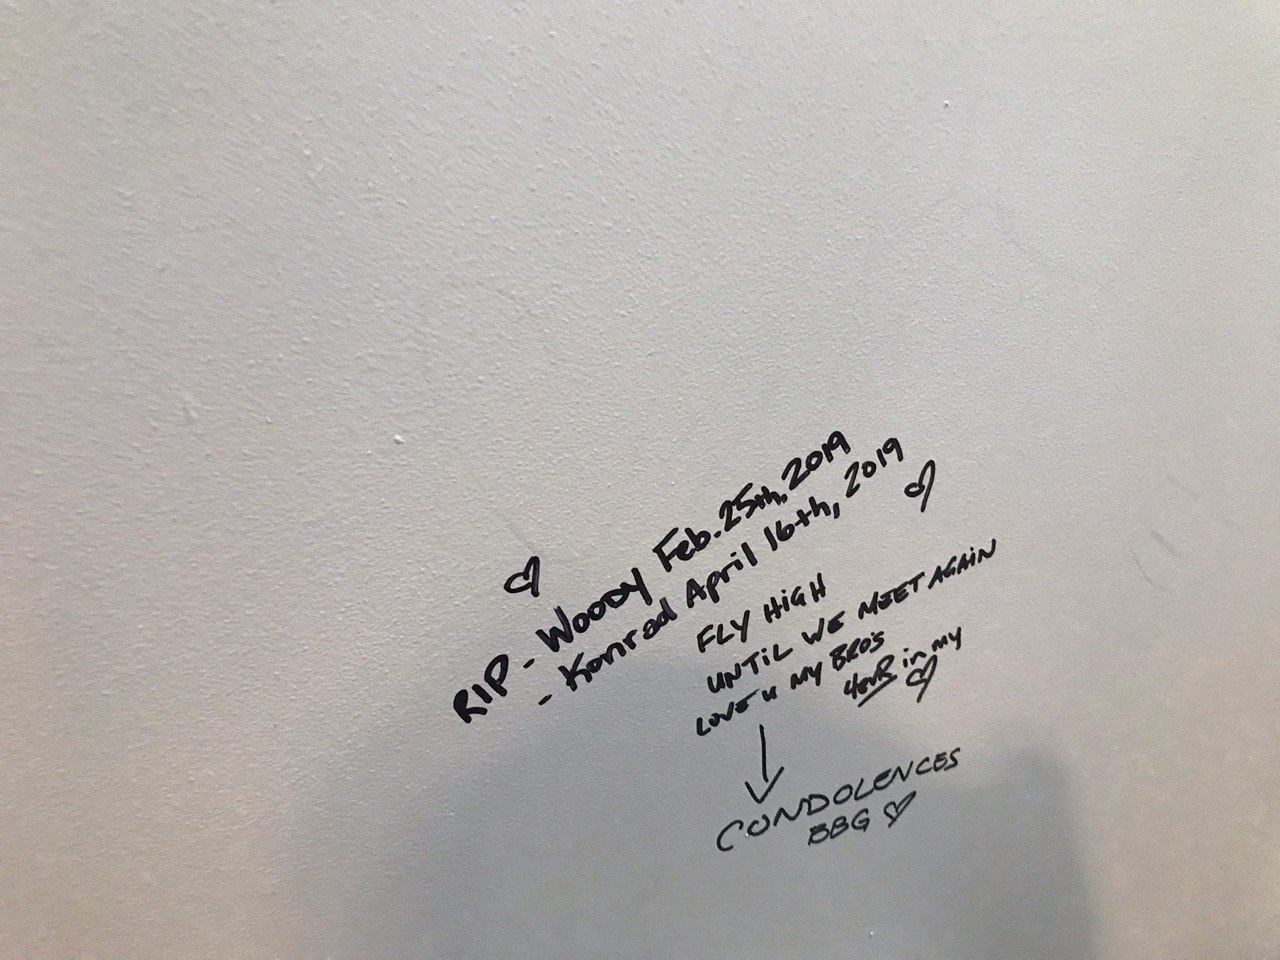 RIP - Woody Feb. 25th, 2019
- Konrad April 16th, 2019
FLY HiGH
UNTiL WE MEET AGAiN
LOVE u MY BRO'S
4evR in my
CONDOLENCES
BBG